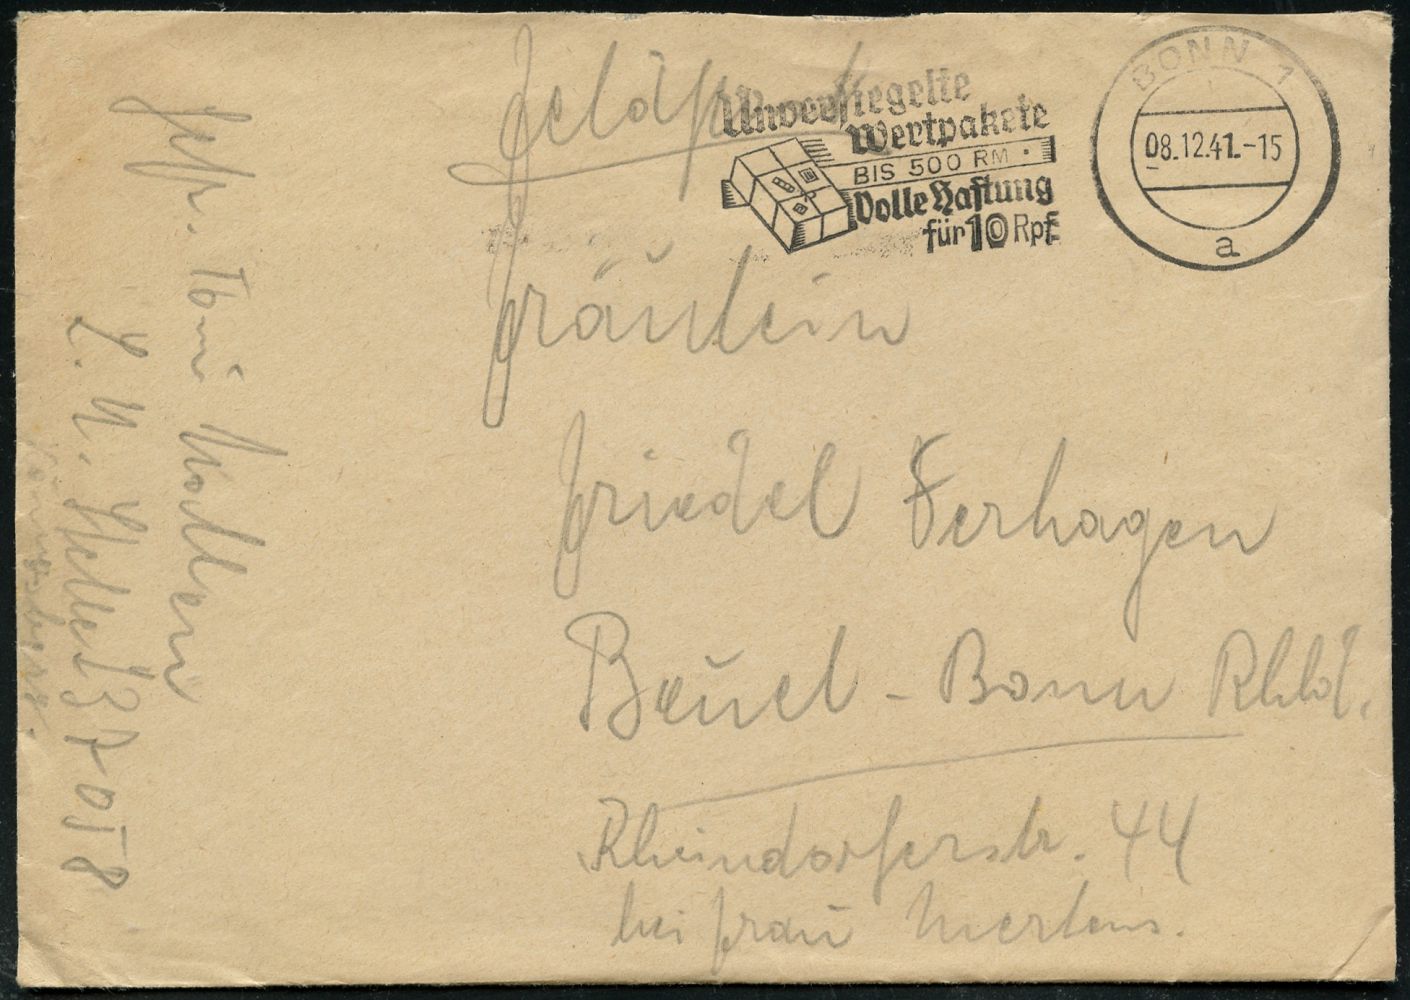 Feldpost
Unversiegelte
Wertpakete
BIS 500 RM
Volle Haftung
für 10 Rpf
BONN 1
08.12.41.-15
a
Fräulein
Friedel Verhagen
Beuel - Bonn Rhld.
Rheindorferstr. 44
bei Frau Mertens.
Gefr. Toni
L. N. 37058